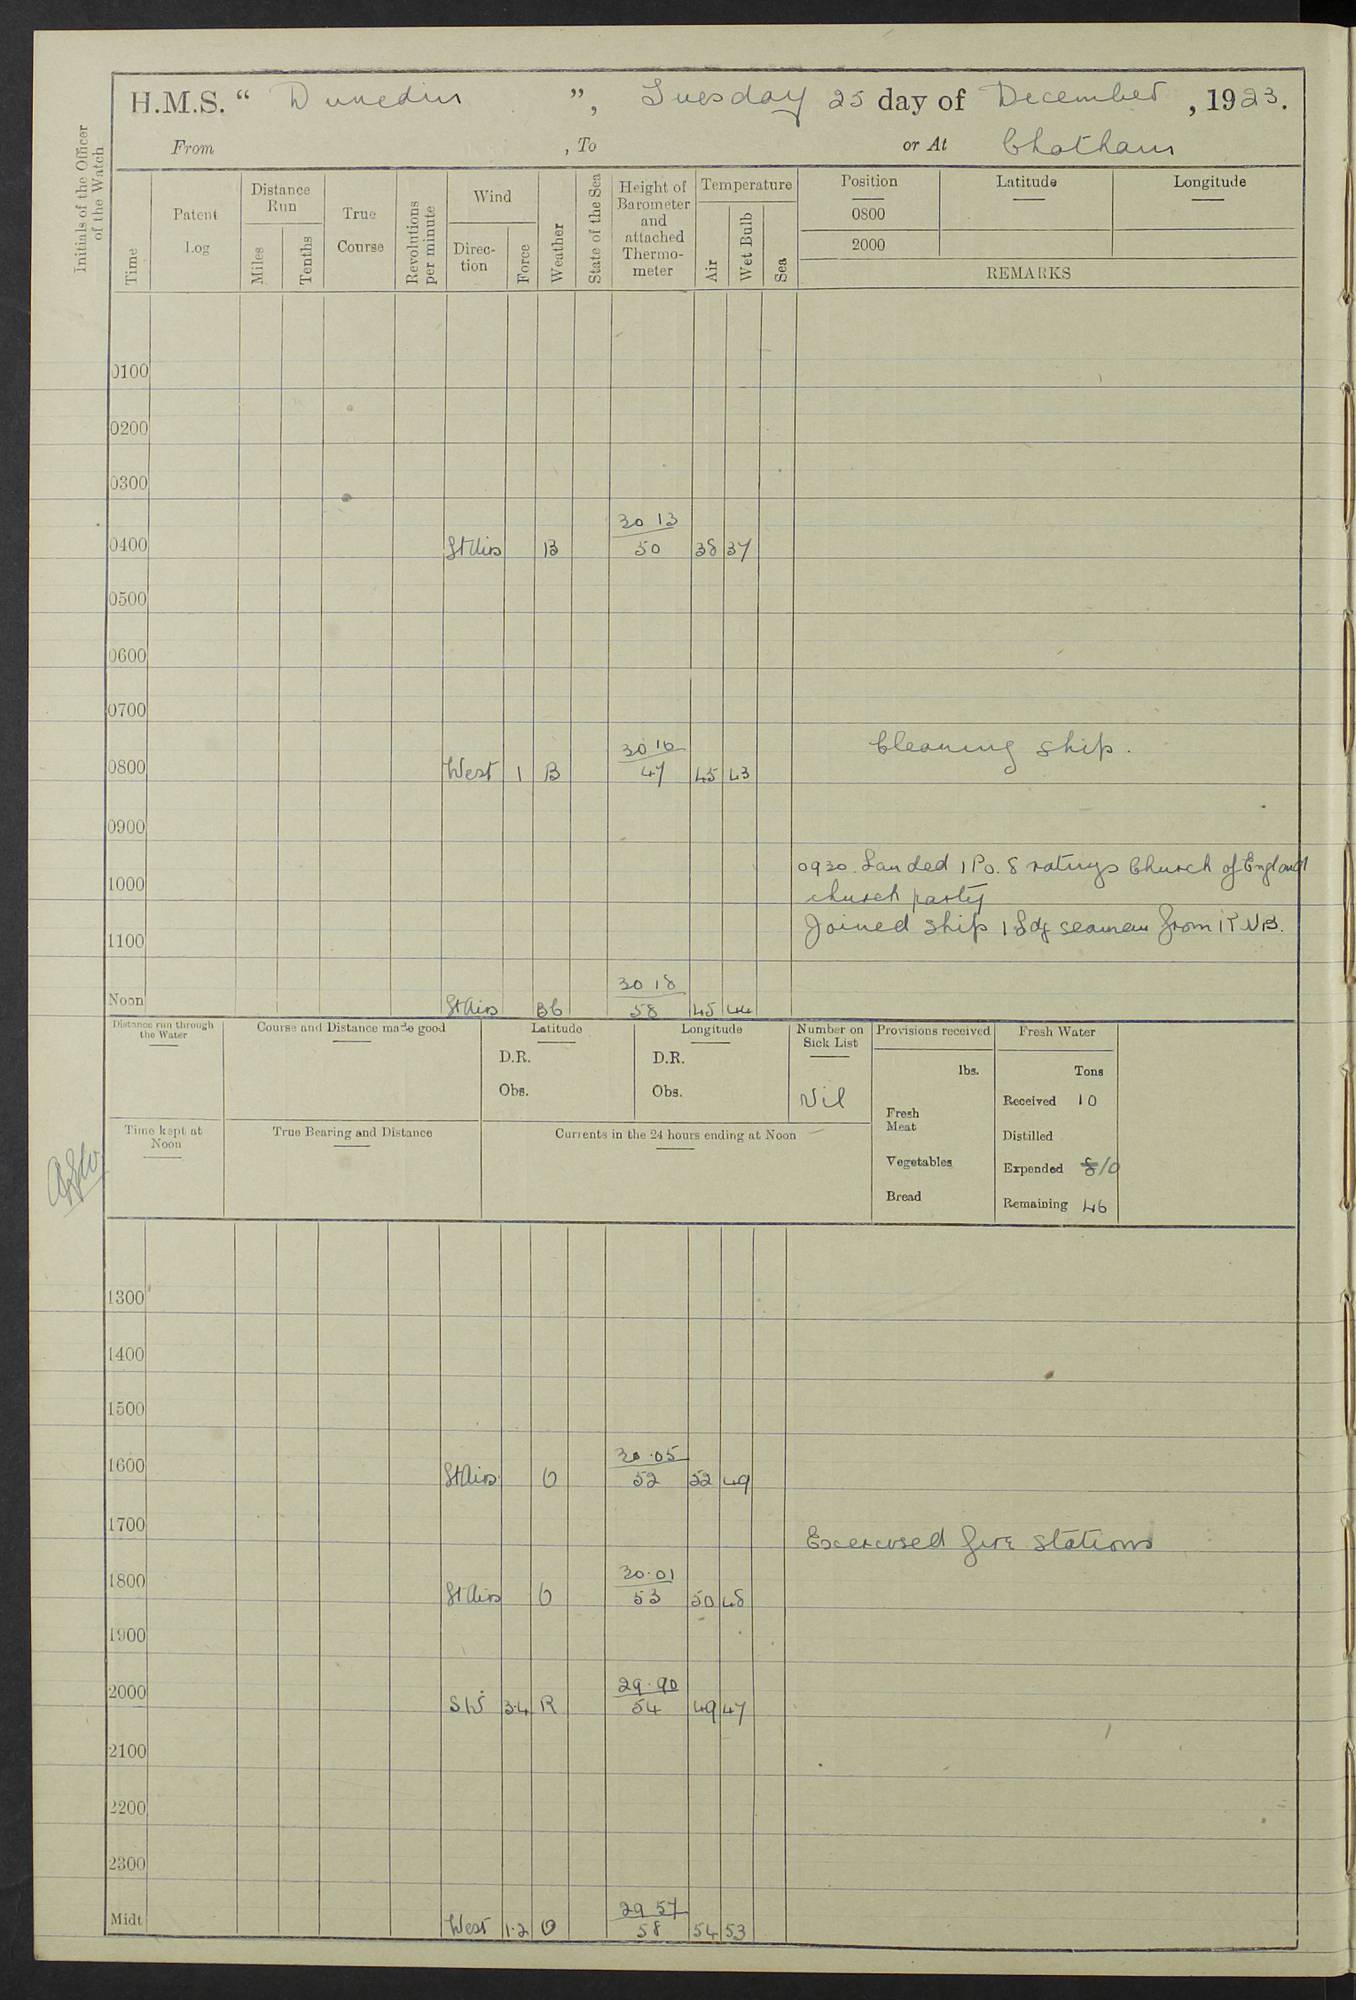 H.M.S. “ Dunedin ”, Tuesday 25 day of December, 1923.
From , To or At Chatham
Initials of the Officer of the Watch
Time
Patent Log
Distance Run
Miles
Tenths
True Course
Revolutions per minute
Wind
Direction
Force
Weather
State of the Sea
Height of Barometer and attached Thermometer
Temperature
Air
Wet Bulb
Sea
Position Latitude Longitude
0800
2000
REMARKS
0100
0200
0300
30 13
0400 St Airs B 50 38 37
0500
0600
0700
30 16 Cleaning ship.
0800 West 1 B 47 45 43
0900
0930. Landed 1 Po. 8 ratings Church of England
1000 church party
Joined ship 1 Ldg seaman from R N B.
1100
30 18
Noon St Airs Bc 58 45 44
Distance run through the Water
Course and Distance made good
Latitude
D.R.
Obs.
Longitude
D.R.
Obs.
Number on Sick List
Nil
Provisions received
lbs.
Fresh Meat
Vegetables
Bread
Fresh Water
Tons
Received 10
Distilled
Expended 8 10
Remaining 46
Time kept at Noon
True Bearing and Distance
Currents in the 24 hours ending at Noon
1300
1400
1500
30.05
1600 St Airs O 52 52 49
1700
Excercised fire stations
30.01
1800 St Airs O 53 50 48
1900
29.90
2000 SW 3.4 R 54 49 47
2100
2200
2300
29 57
Midt West 1.2 O 58 54 53